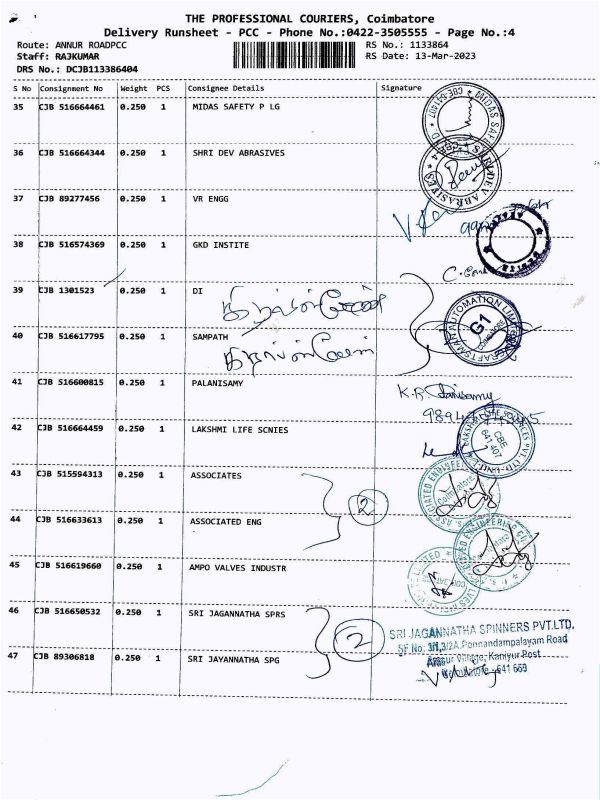 THE PROFESSIONAL COURIERS, Coimbatore
Delivery Runsheet - PCC - Phone No.:0422-3505555 - Page No.:4
Route: ANNUR ROADPCC RS No.: 1133864
Staff: RAJKUMAR RS Date: 13-Mar-2023
DRS No.: DCJB113386404
S No Consignment No Weight PCS Consignee Details Signature
35 CJB 516664461 0.250 1 MIDAS SAFETY P LG
36 CJB 516664344 0.250 1 SHRI DEV ABRASIVES
37 CJB 89277456 0.250 1 VR ENGG
38 CJB 516574369 0.250 1 GKD INSTITE
39 CJB 1301523 0.250 1 DI
40 CJB 516617795 0.250 1 SAMPATH
G1
41 CJB 516600815 0.250 1 PALANISAMY
42 CJB 516664459 0.250 1 LAKSHMI LIFE SCNIES
CBE
641 407
43 CJB 515594313 0.250 1 ASSOCIATES
2
44 CJB 516633613 0.250 1 ASSOCIATED ENG
45 CJB 516619660 0.250 1 AMPO VALVES INDUSTR
46 CJB 516650532 0.250 1 SRI JAGANNATHA SPRS
2
SRI JAGANNATHA SPINNERS PVT.LTD.
SF No: 3/1,3/2A.Ponnandampalayam Road
Arasur Village, Kaniyur Post
Coimbatore - 641 669
47 CJB 89306818 0.250 1 SRI JAYANNATHA SPG